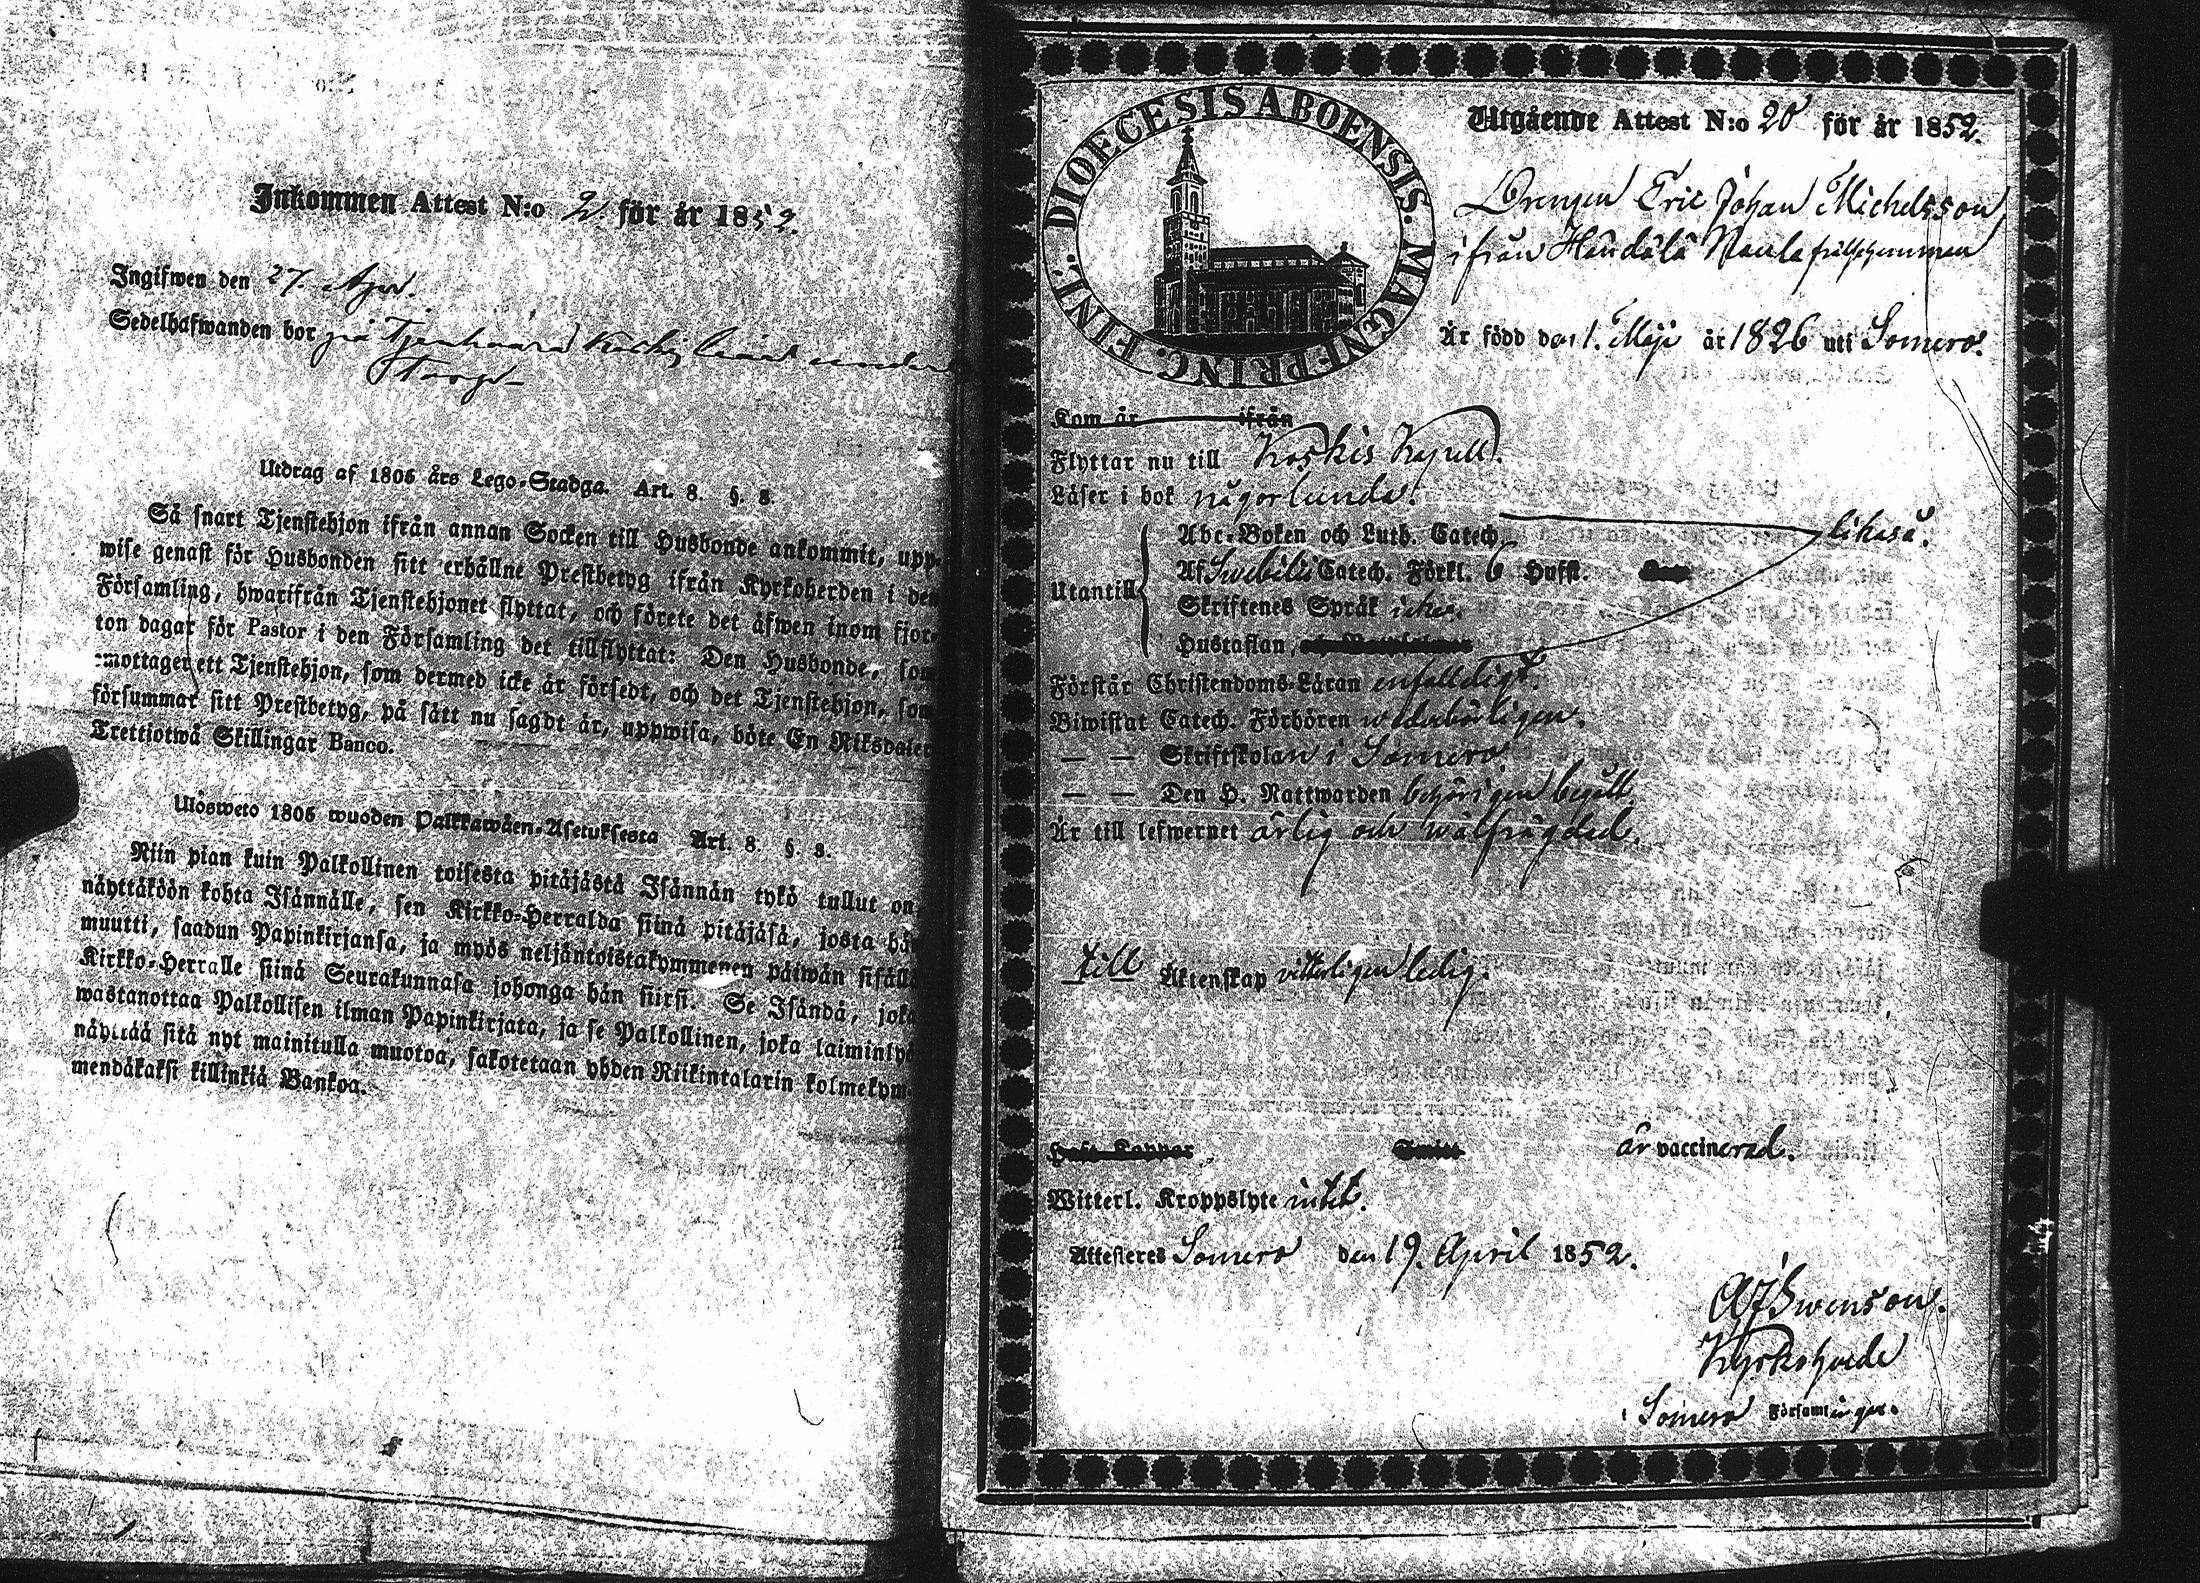 Inkommen Attest N:o 2. för år 1852.
Ingifwen den 27. Apr.
Sedelhafwanden bor på
Utdrag af 1805 års Lego-Stadga. Art. 8. §. 8.
Så snart Tjenstehjon ifrån annan Socken till Husbonde ankommit, upp-
wise genast för Husbonden sitt erhållne Prestbetyg ifrån Kyrkoherden i den
Församling, hwarifrån Tjenstehjonet flyttat, och förete det äfwen inom fjor-
ton dagar för Pastor i den Församling det tillflyttat: Den Husbonde, som
emottager ett Tjenstehjon, som dermed icke är försedt, och det Tjenstehjon, som
försummar sitt Prestbetyg, på sätt nu sagdt är, uppwisa, böte En Riksdaler
Trettiotwå Skillingar Banco.
Ulosweto 1805 wuoden Palkkawäen-Asetuksesta Art. 8. §. 8.
Niin pian kuin Palkollinen toisesta pitäjästä Isännän tykö tullut on,
näyttäköön kohta Isännälle, sen Kirkko-Herralda siinä pitäjäsä, josta hän
muutti, saadun Papinkirjansa, ja myös neljäntoistakymmenen päiwän sisällä
Kirkko-Herralle siinä Seurakunnasa johonga hän siirsi. Se Isändä, joka
wastanottaa Palkollisen ilman Papinkirjata, ja se Palkollinen, joka laiminlyö
näyttää sitä nyt mainitulla muotoa, sakotetaan yhden Riikintalarin kolmekym-
mendäkaksi killinkiä Bankoa.
DIOECESIS ABOENSIS. MAGNI PRINC. FINL.
Utgående Attest N:o 20 för år 1852.
Drengen Eric Johan Michelsson
ifrån Häntälä Naula
Är född den 1. Maji år 1826 uti Somero.
Kom år ifrån
Flyttar nu till Koskis Kapell.
Läser i bok någorlunda.
Abc-Boken och Luth. Catech. likaså.
Utantill Af Svebilii Catech. Förkl. 6 Hufst.
Skriftenes Språk icke.
Hustaflan,
Förstår Christendoms-Läran enfaldigt.
Biwistat Catech. Förhören wederbörligen.
— — Skriftskolan i Somero.
— — Den H. Nattwarden behörigen begått
Är till lefwernet ärlig och wälfrägdad.
till Äktenskap vitterligen ledig.
Haft Koppor är vaccinerad.
Witterl. Kroppslyte intet.
Attesteres Somero den 19. April 1852.
Swenson.
Kyrkoherde
i Somero Församlingar.